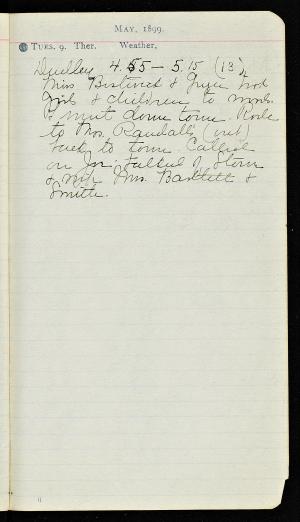 MAY, 1899.
TUES. 9. Ther. Weather,
Dudley 4.55 – 5.15 (13)
Miss & took
girls & children to woods.
& went down town. Rode
to Mrs. Randall's (out)
back to town. Called
on
& Mrs. Bartlett &
Smith.